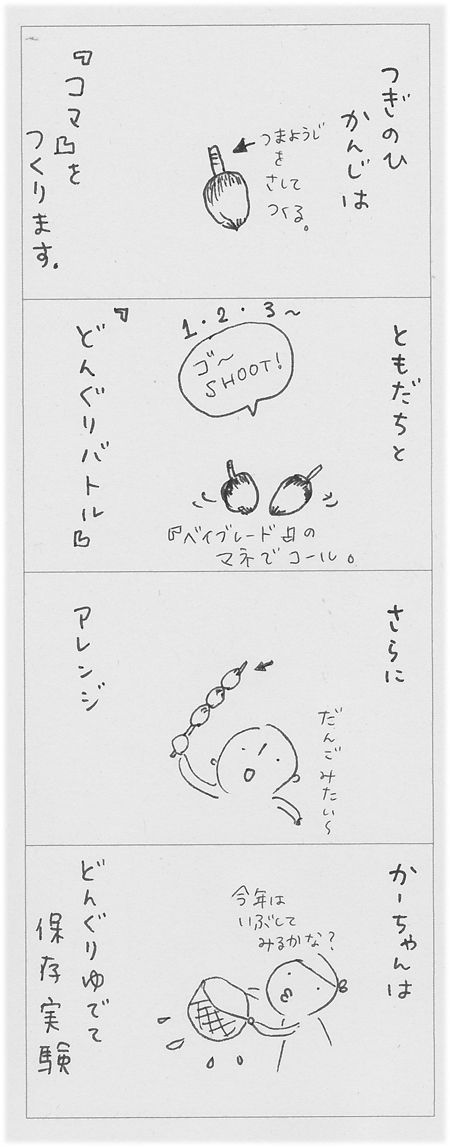 つぎのひ
かんじは
つまようじ
を
さして
つくる。
『コマ』を
つくります。
ともだちと
1・2・3〜
ゴ〜
SHOOT!
『ベイブレード』の
マネでコール。
『どんぐりバトル』
さらに
だんごみたい〜
アレンジ
かーちゃんは
今年は
いぶして
みるかな?
どんぐりゆでて
保存実験